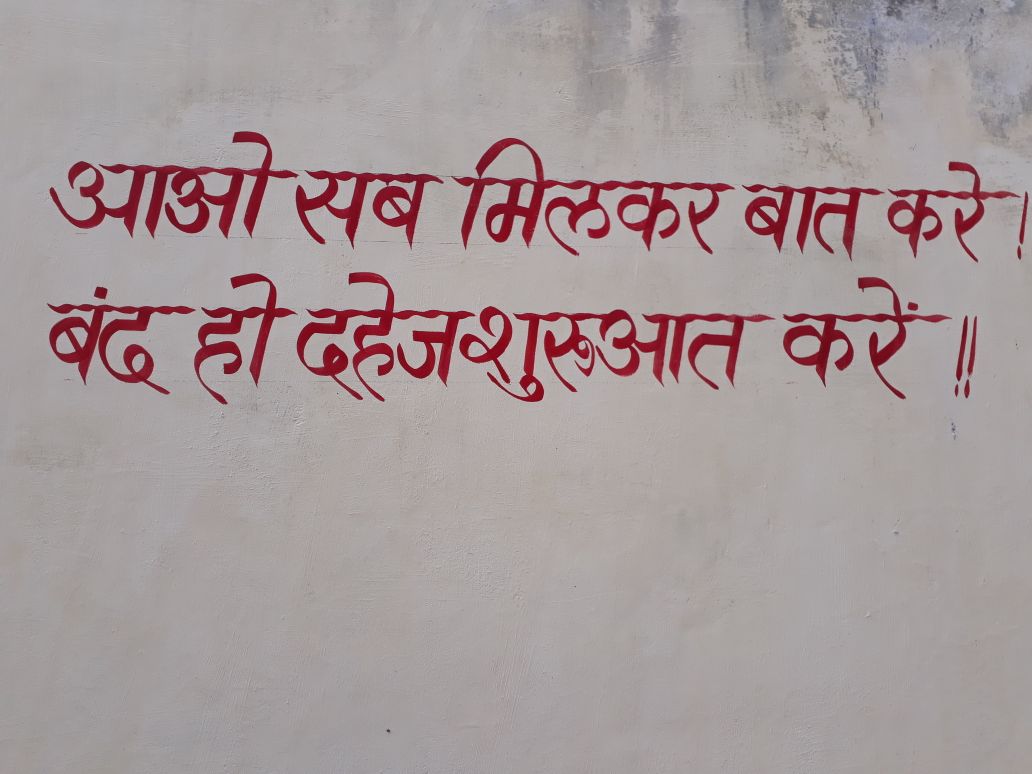 आओ सब मिलकर बात करे !
बंद हो दहेज शुरूआत करें !!